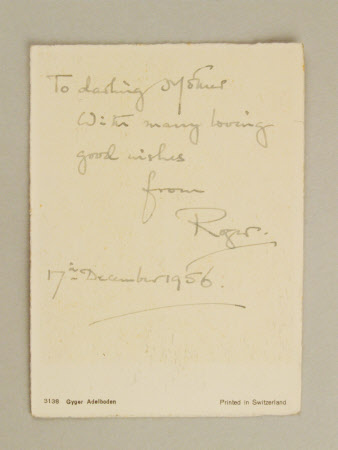 To darling
With many loving
good wishes
from
Roger.
17th December 1956.
3138 Gyger Adelboden Printed in Switzerland